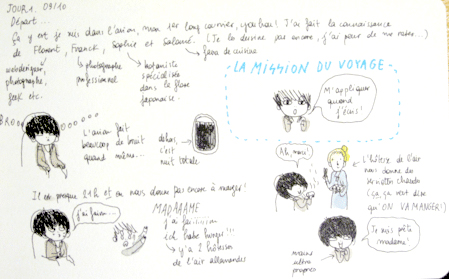 JOUR 1. 09/10
Départ...
Ça y est je suis dans l'avion, mon 1er long courrier, youhou! J'ai fait la connaissance
de Florent, Franck, Sophie et Salomé. (Je les dessine pas encore, j'ai peur de me rater...)
webdesigner,
photographe,
geek etc.
photographe
professionnel
botaniste
spécialisée
dans la flore
japonaise
fana de cuisine
LA MISSION DU VOYAGE
M'appliquer
quand
j'écris!
BRO
L'avion fait
beaucoup de bruit
quand même...
dehors,
c'est
nuit totale
Ah, merci!
L'hôtesse de l'air
nous donne des
serviettes chaudes
(ça, ça veut dire
qu'ON VA MANGER!)
Il est presque 21h et on nous donne pas encore à manger!
j'ai faim...
MADAAAME
ich habe hunger!!!
y'a 2 hôtesses
de l'air allemandes
Je suis prête
madame!
mains
ultra
propres